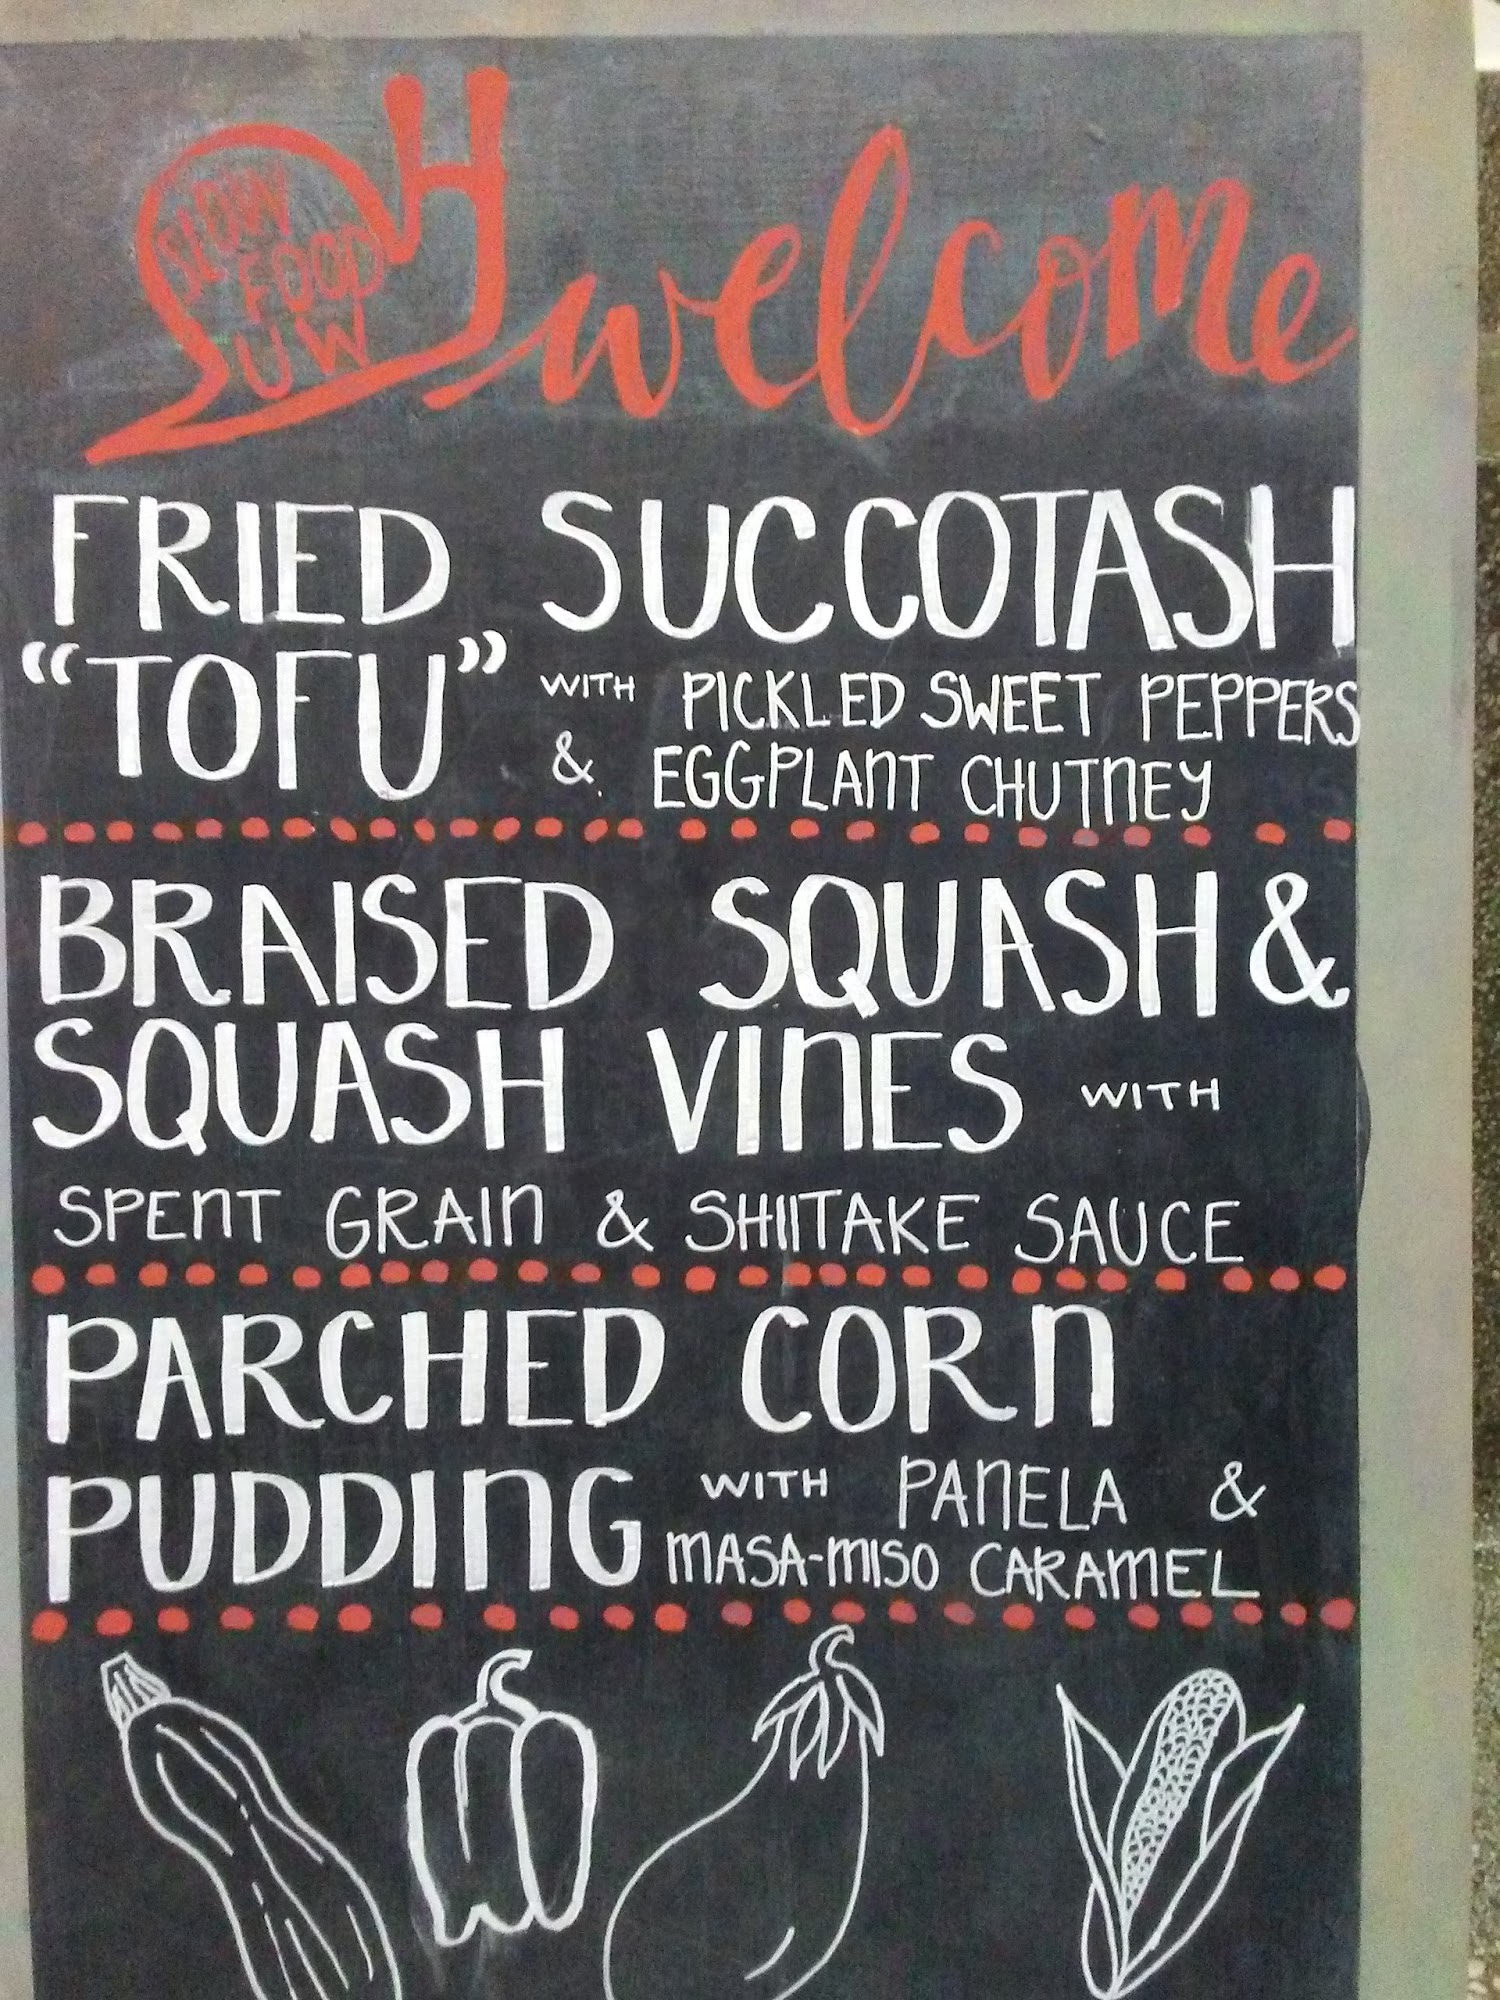 SLOW
FOOD
UW
welcome
FRIED SUCCOTASH
"TOFU" WITH PICKLED SWEET PEPPERS
& EGGPLANT CHUTNEY
BRAISED SQUASH &
SQUASH VINES WITH
SPENT GRAIN & SHIITAKE SAUCE
PARCHED CORN
PUDDING WITH PANELA &
MASA-MISO CARAMEL